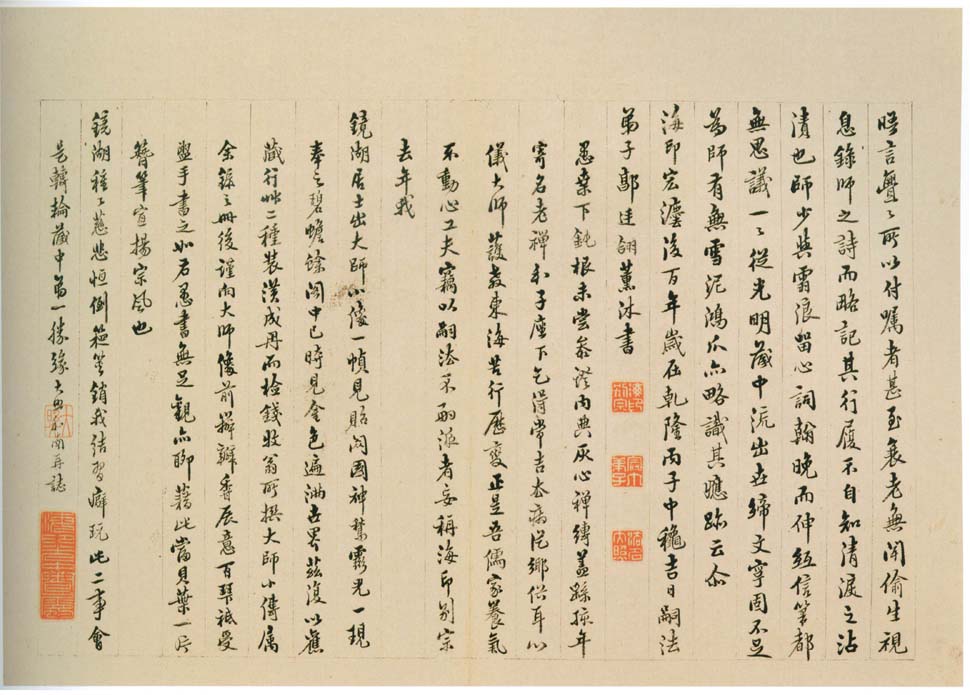 晤言亹亹所以付嘱者甚至衰老無聞偷生視
息錄師之詩而略記其行履不自知清淚之沾
漬也師少與雪浪留心詞翰晚而伸紙信筆都
無思議一一從光明藏中流出世締文字固不足
為師有無雪泥鴻爪亦略識其應跡云尒
海印宏灋後百年歲在乾隆丙子中穐吉日嗣法
弟子鄢廷翮薰沐書
愚棄下鈍根未嘗叅證内典灰心禪縛蓋蹤掠年
寄名老禪和子座下乞得常吉太病從鄉俗耳以
儀大師護教東海苦行歷變正是吾儒家養氣
不動心工夫竊以嗣法不嗣派者妄稱海印别宗
去年我
鏡湖居士出大師小像一幀見貽閟國神椘靈光一現
奉之碧幨餘閣中已時見金色遍滿世界茲復以舊
藏行此二種裝潢成册而檢錢牧翁所撰大師小傳属
余錄之册後謹向大師像前辦瓣香展意百拜祗受
盥手書之如右愚書無足觀亦聊藉此當貝葉一片
簪筆宣揚宗風也
鏡湖種種慈悲恒倒篋筐銷我結習癖玩此二事會
是轉輪藏中苐一勝緣 再誌